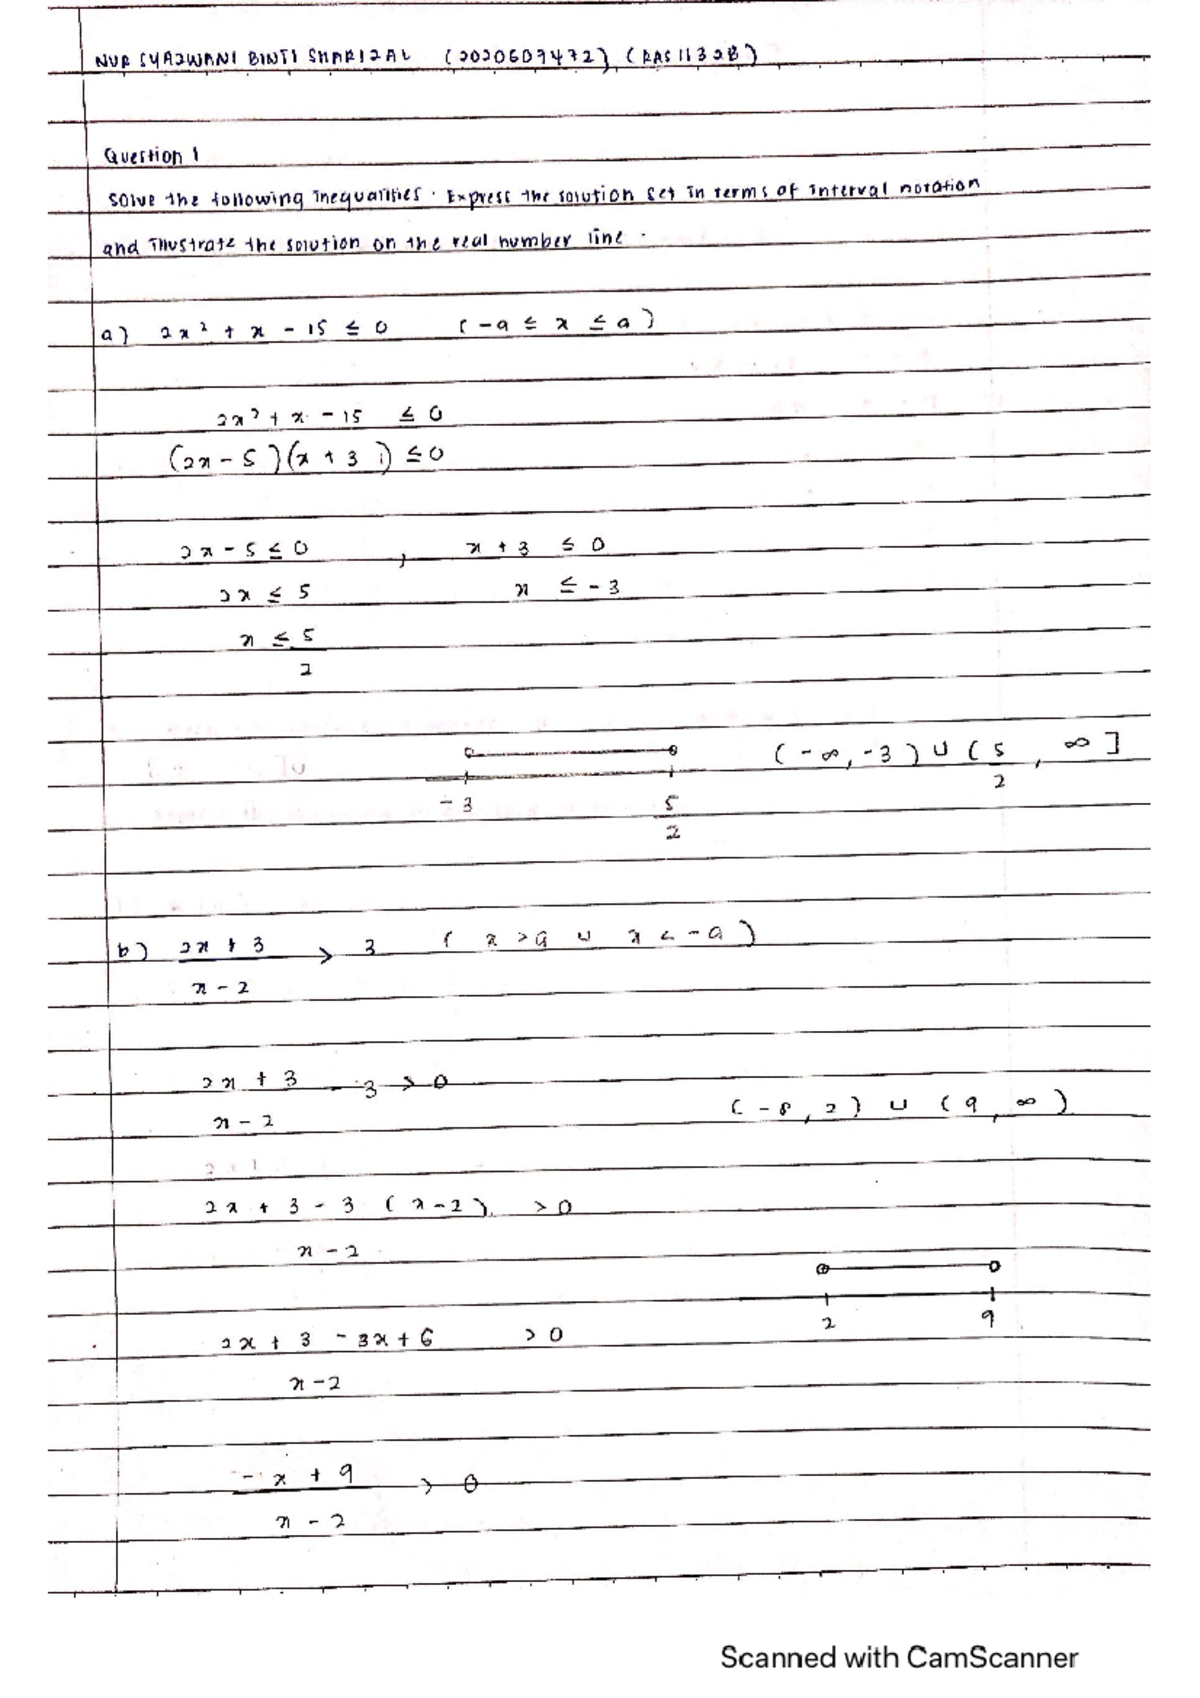 NUR SYAZWANI BINTI SHARIZAL (2020607472) (RAS1132B)
Question 1
Solve the following inequalities. Express the solution set in terms of interval notation
and illustrate the solution on the real number line.
a) 2x² + x - 15 ≤ 0 (-a ≤ x ≤ a)
2x² + x - 15 ≤ 0
(2x - 5)(x + 3) ≤ 0
2x - 5 ≤ 0 , x + 3 ≤ 0
2x ≤ 5 x ≤ -3
x ≤ 5
2
(-∞, -3) ∪ (5, ∞]
2
-3 5
2
b) 2x + 3 > 3 (x > a ∪ x < -a)
x - 2
2x + 3 - 3 > 0
x - 2
(-∞, 2) ∪ (9, ∞)
2x + 3 - 3 (x - 2) > 0
x - 2
2 9
2x + 3 - 3x + 6 > 0
x - 2
-x + 9 > 0
x - 2
Scanned with CamScanner